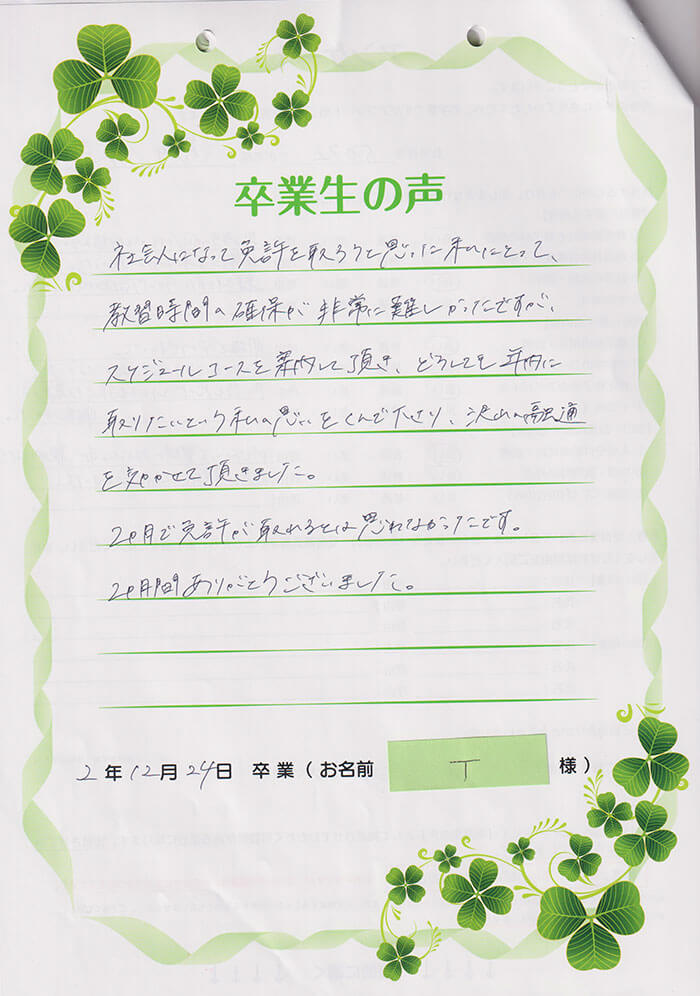 卒業生の声
社会人になって免許を取ろうと思った私にとって、
教習時間の確保が非常に難しかったですが、
スケジュールコースを案内して頂き、どうしても年内に
取りたいという私の思いをくんで下さり、沢山の融通
を効かせて頂きました。
2ヶ月で免許が取れるとは思わなかったです。
2ヶ月間ありがとうございました。
2年12月24日 卒業(お名前 T 様)